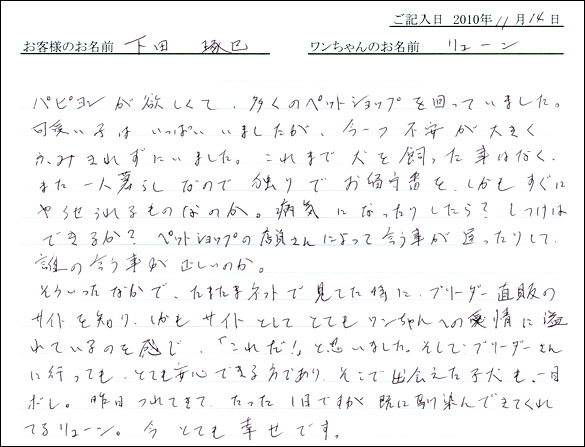 ご記入日 2010年 11月 14日
お客様のお名前 下田 琢巳 ワンちゃんのお名前 リューン
パピヨンが欲しくて、多くのペットショップを回っていました。
可愛い子はいっぱいいましたが、今一つ不安が大きく
ふみきれずにいました。これまで犬を飼った事はなく、
また一人暮らしなので独りでお留守番を、しかもすぐに
やらせられるものなのか。病気になったりしたら？しつけは
できるか？ペットショップの店員さんによって言う事が違ったりして、
誰の言う事が正しいのか。
そういったなかで、たまたまネットで見てた時に、ブリーダー直販の
サイトを知り、しかもサイトとしてとてもワンちゃんへの愛情に溢
れているのを感じ、「これだ!」と思いました。そしてブリーダーさん
に行っても、とても安心できる方であり、そこで出会えた子犬も、一目
ボレ。昨日つれてきて、たった1日ですが既に馴染んできてくれ
てるリューン。今とても幸せです。